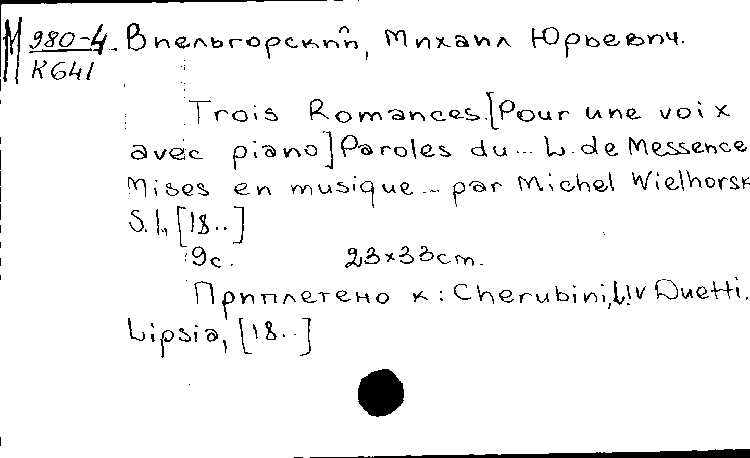 М 980-4. Виельгорский, Михаил Юрьевич.
К641
Trois Romances.[Pour une voix
avec piano] Paroles du... L. de Messence
Mises en musique... par Michel Wielhorsk
S.l., [18..]
9с. 23×33cm.
Приплетено к: Cherubini, L. IV Duetti.
Lipsia, [18..]